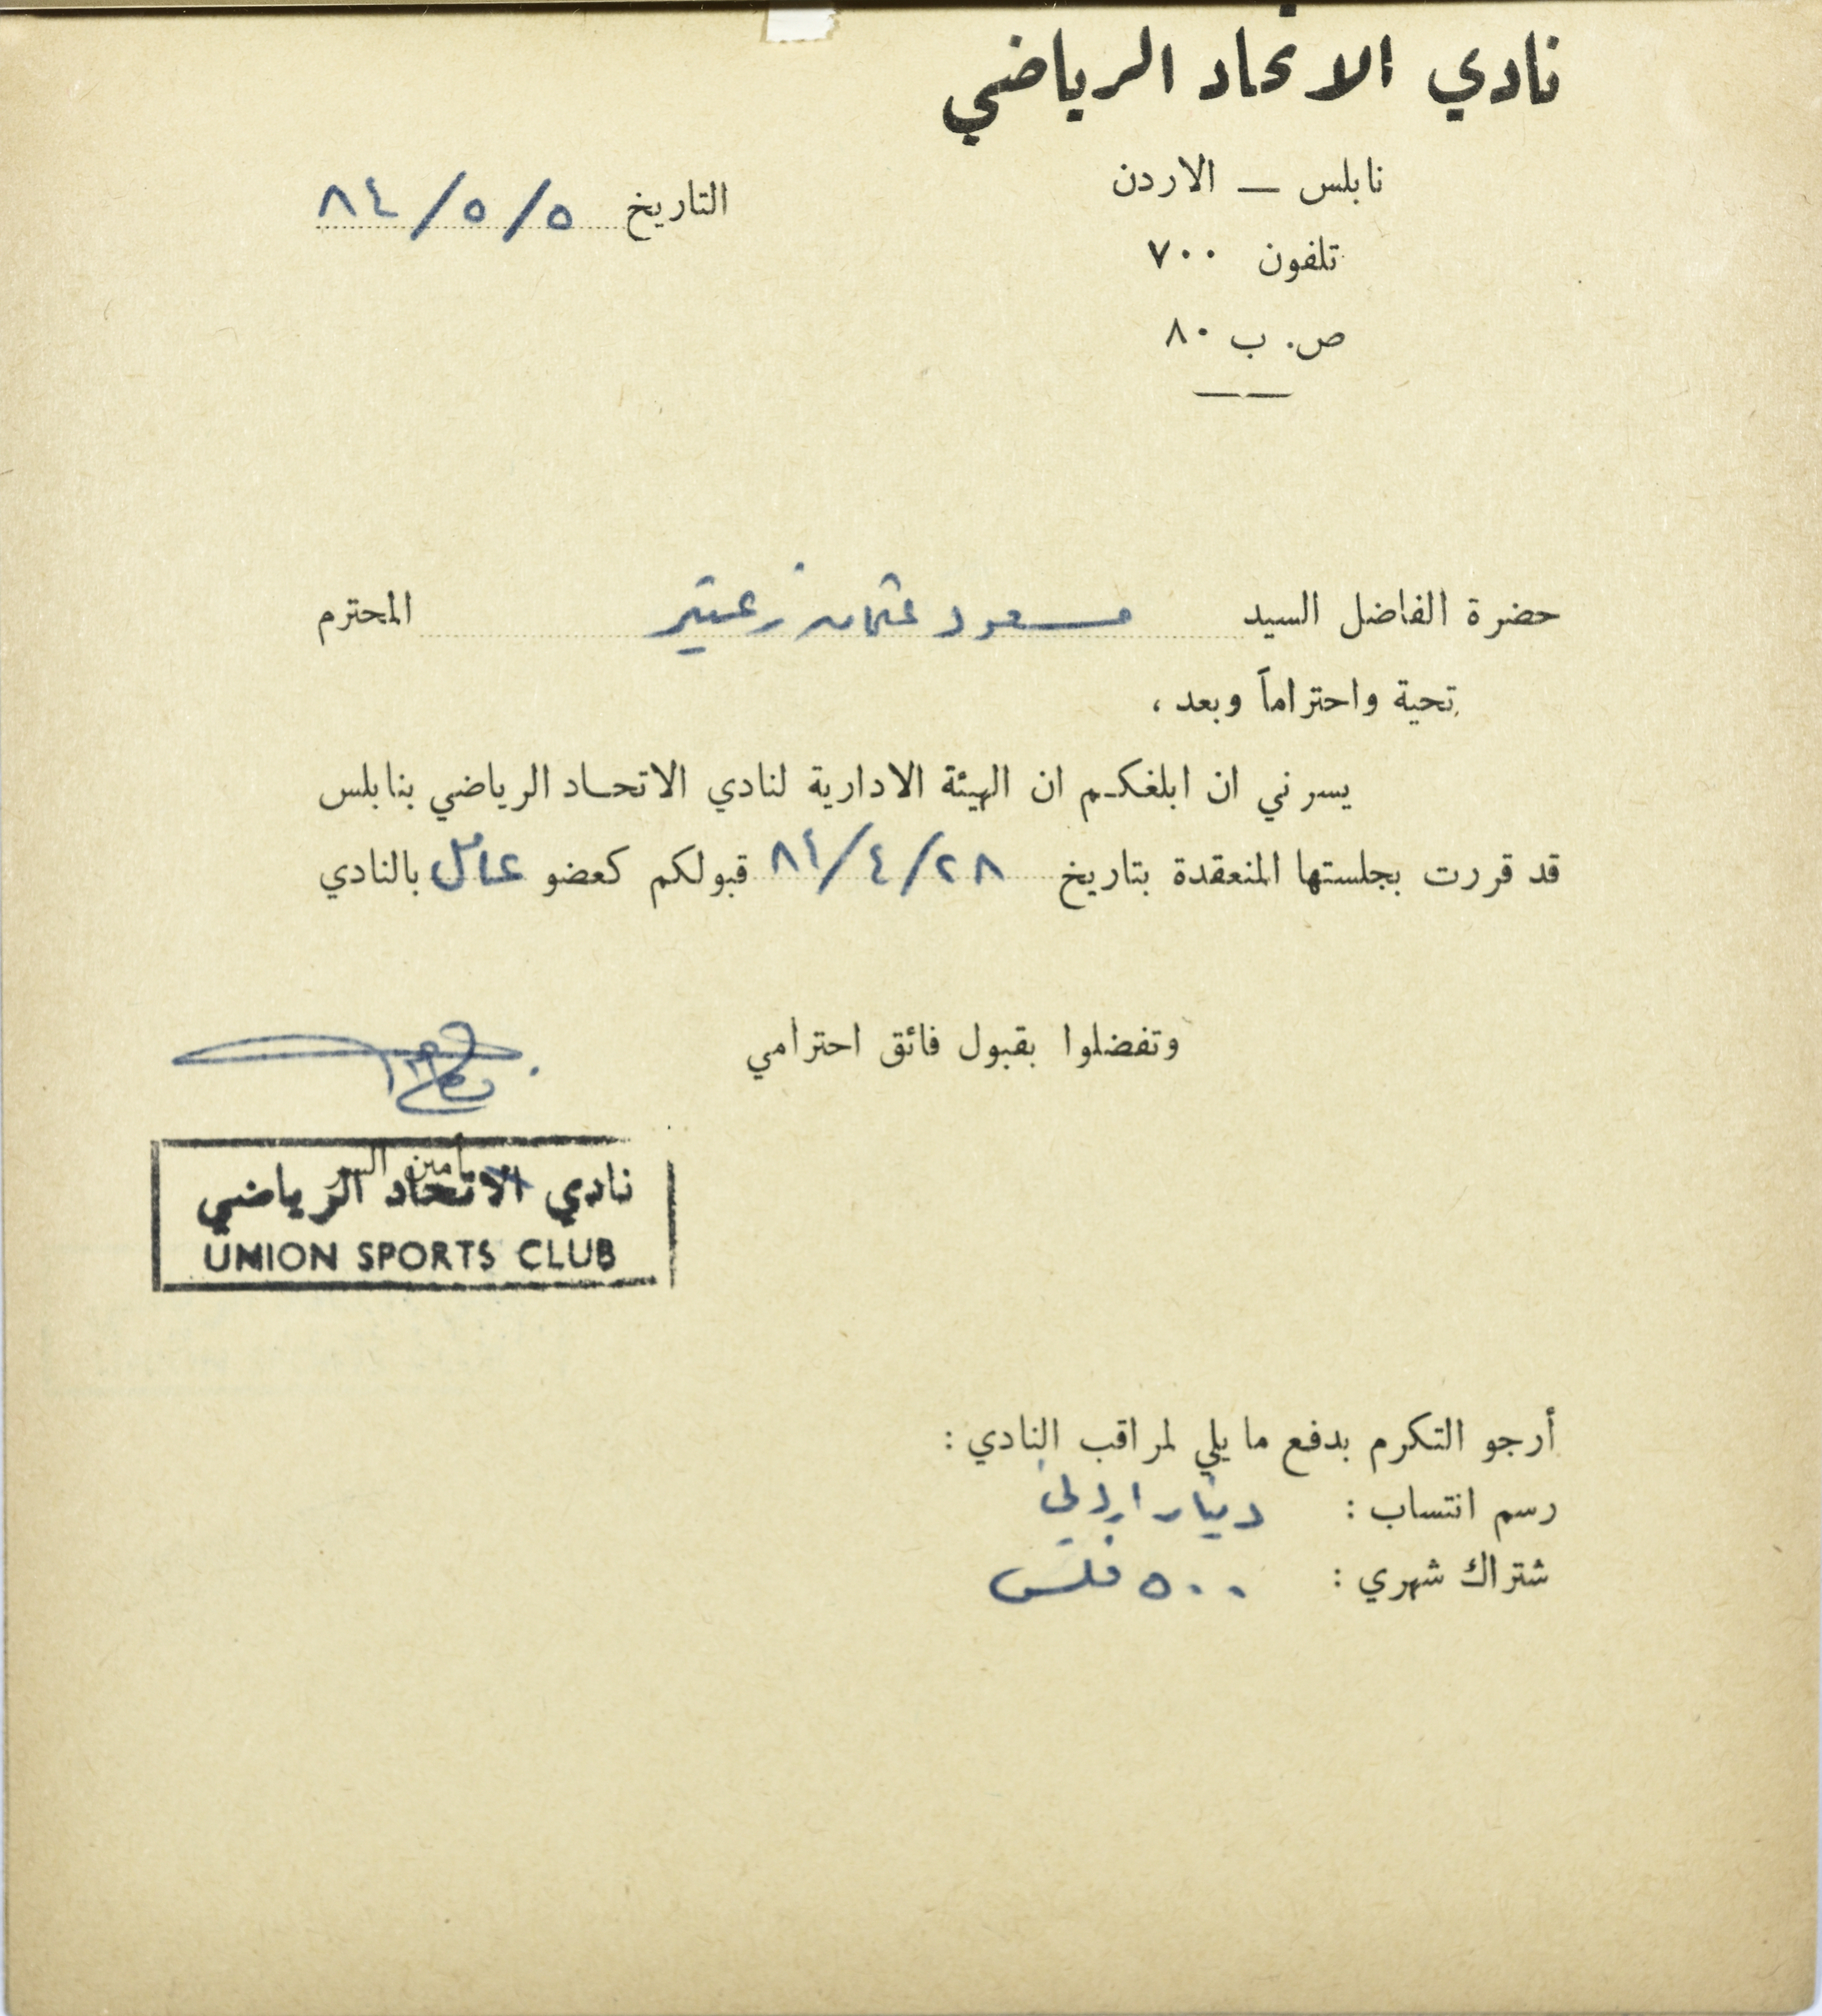 نادي الاتحاد الرياضي
نابلس — الاردن
التاريخ ٥/٥/٨٤
تلفون ٧٠٠
ص. ب ٨٠
حضرة الفاضل السيد مسعود عثمان زعيتر المحترم
تحية واحتراماً وبعد ،
يسرني ان ابلغكم ان الهيئة الادارية لنادي الاتحاد الرياضي بنابلس
قد قررت بجلستها المنعقدة بتاريخ ٢٨/٤/٨٤ قبولكم كعضو عامل بالنادي
وتفضلوا بقبول فائق احترامي
أمين السر
نادي الاتحاد الرياضي
UNION SPORTS CLUB
أرجو التكرم بدفع ما يلي لمراقب النادي :
رسم انتساب : دينار اردني
شتراك شهري : ٥٠٠ فلس